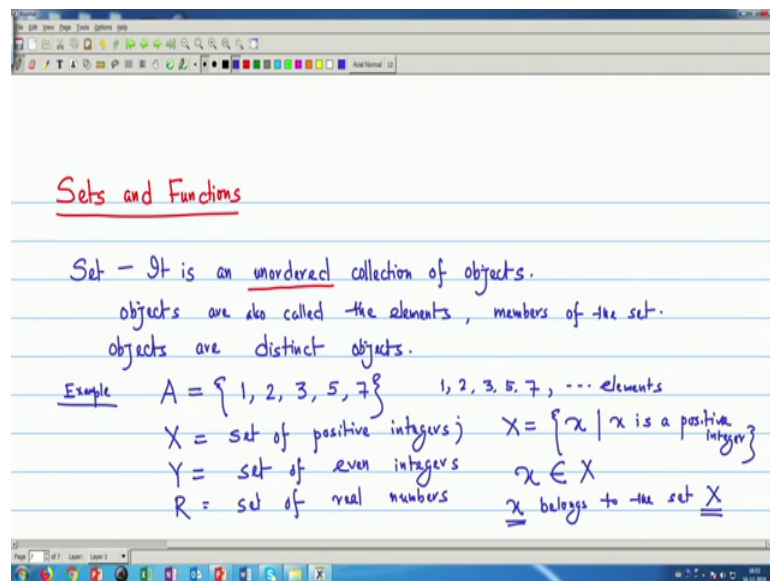 File Edit View Page Tools Options Help
Arial Normal 12
Sets and Functions
Set - It is an unordered collection of objects.
objects are also called the elements, members of the set.
objects are distinct objects.
Example A = { 1, 2, 3, 5, 7} 1, 2, 3, 5, 7, ... elements
X = set of positive integers; X = { x | x is a positive integer }
Y = set of even integers x ∈ X
R = set of real numbers x belongs to the set X
Page 7 of 7 Layer: Layer 1